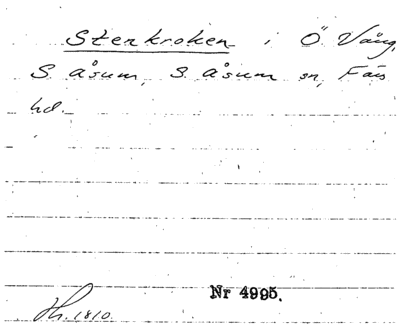 Stenkroken i Ö Väng,
S åsum, S åsum sn, Färs
hd.
Nr 4995.
Lh. 1810.